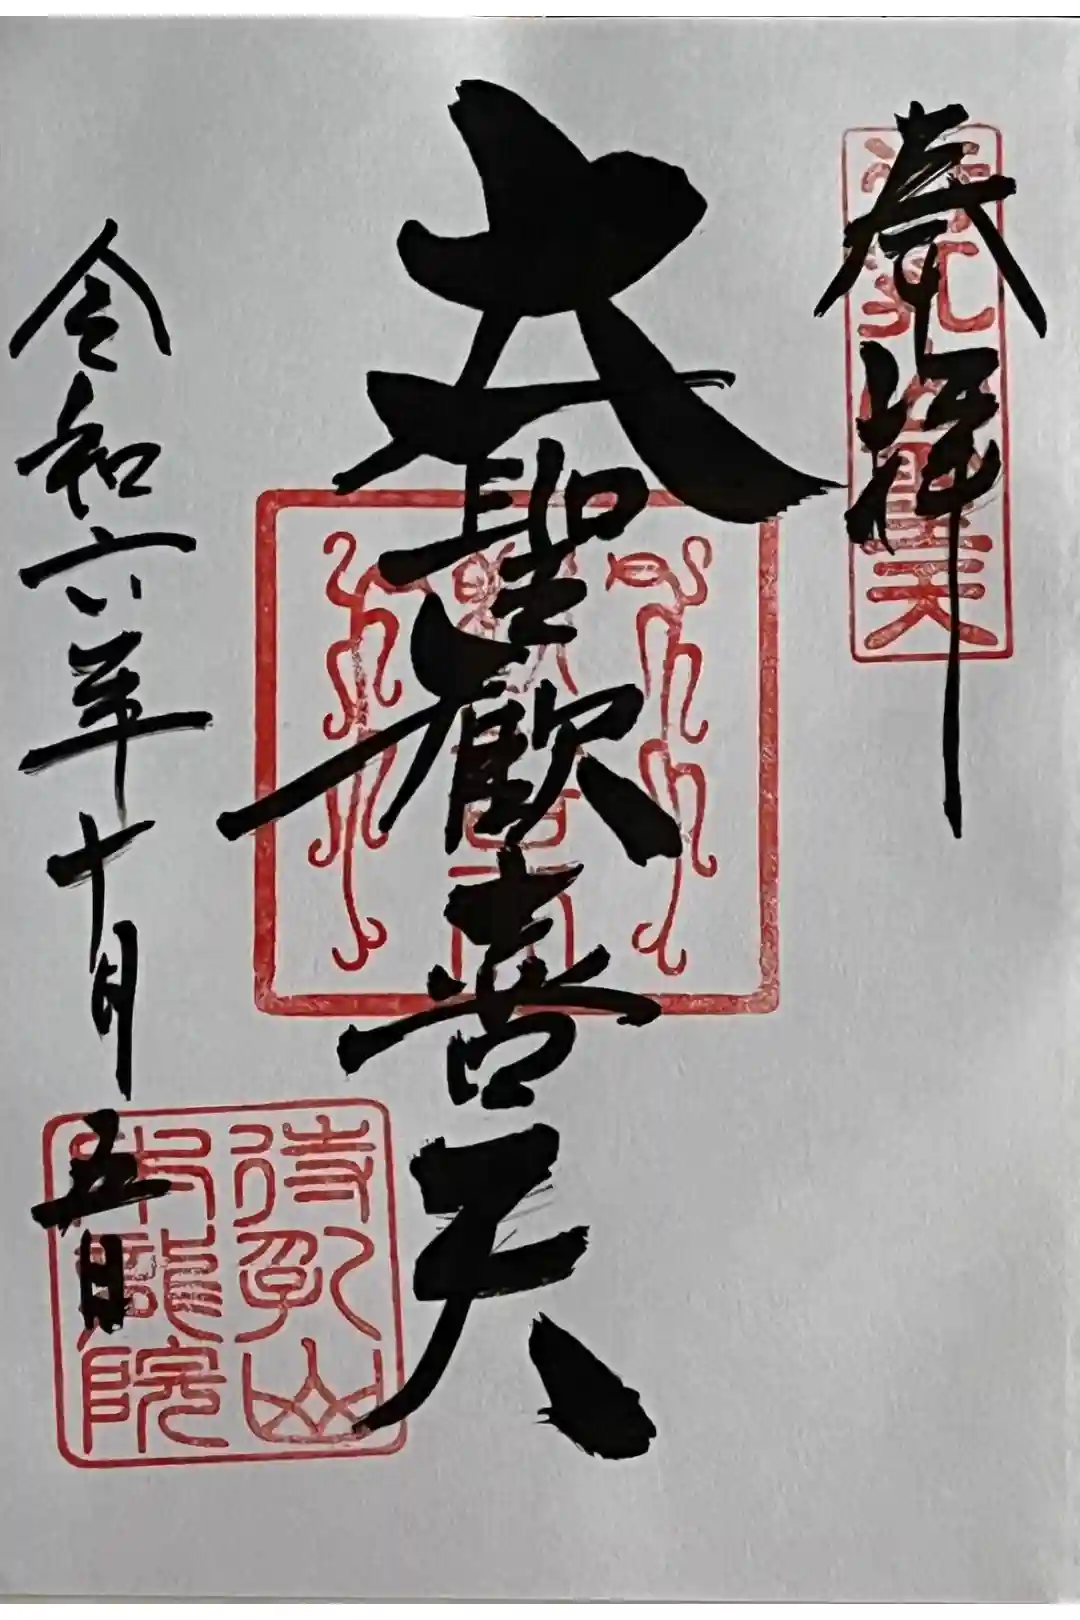 奉拝
待乳山聖天
大聖歓喜天
令和六年十月五日
待乳山
本龍院